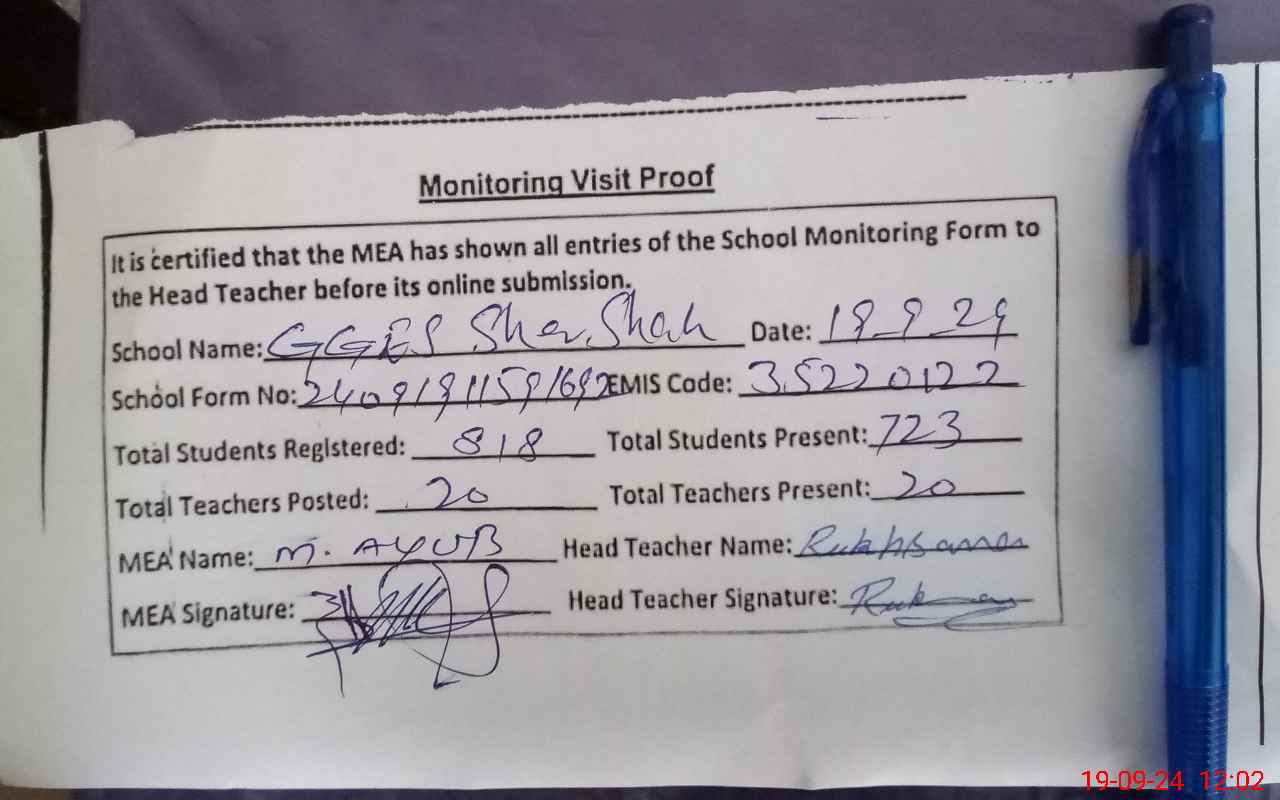 Monitoring Visit Proof
It is certified that the MEA has shown all entries of the School Monitoring Form to
the Head Teacher before its online submission.
School Name: GGES Sher Shah Date: 19-9-24
School Form No: 24091911591692 EMIS Code: 35220122
Total Students Registered: 818 Total Students Present: 723
Total Teachers Posted: 20 Total Teachers Present: 20
MEA Name: M. AYUB Head Teacher Name: Rukhsana
MEA Signature: Head Teacher Signature:
19-09-24 12:02